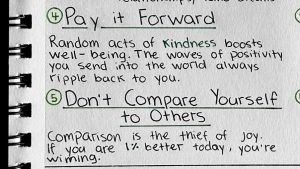 ④ Pay it Forward
Random acts of kindness boosts
well-being. The waves of positivity
you send into the world always
ripple back to you.
⑤ Don't Compare Yourself
to Others
Comparison is the thief of joy.
If you are 1% better today, you're
winning.